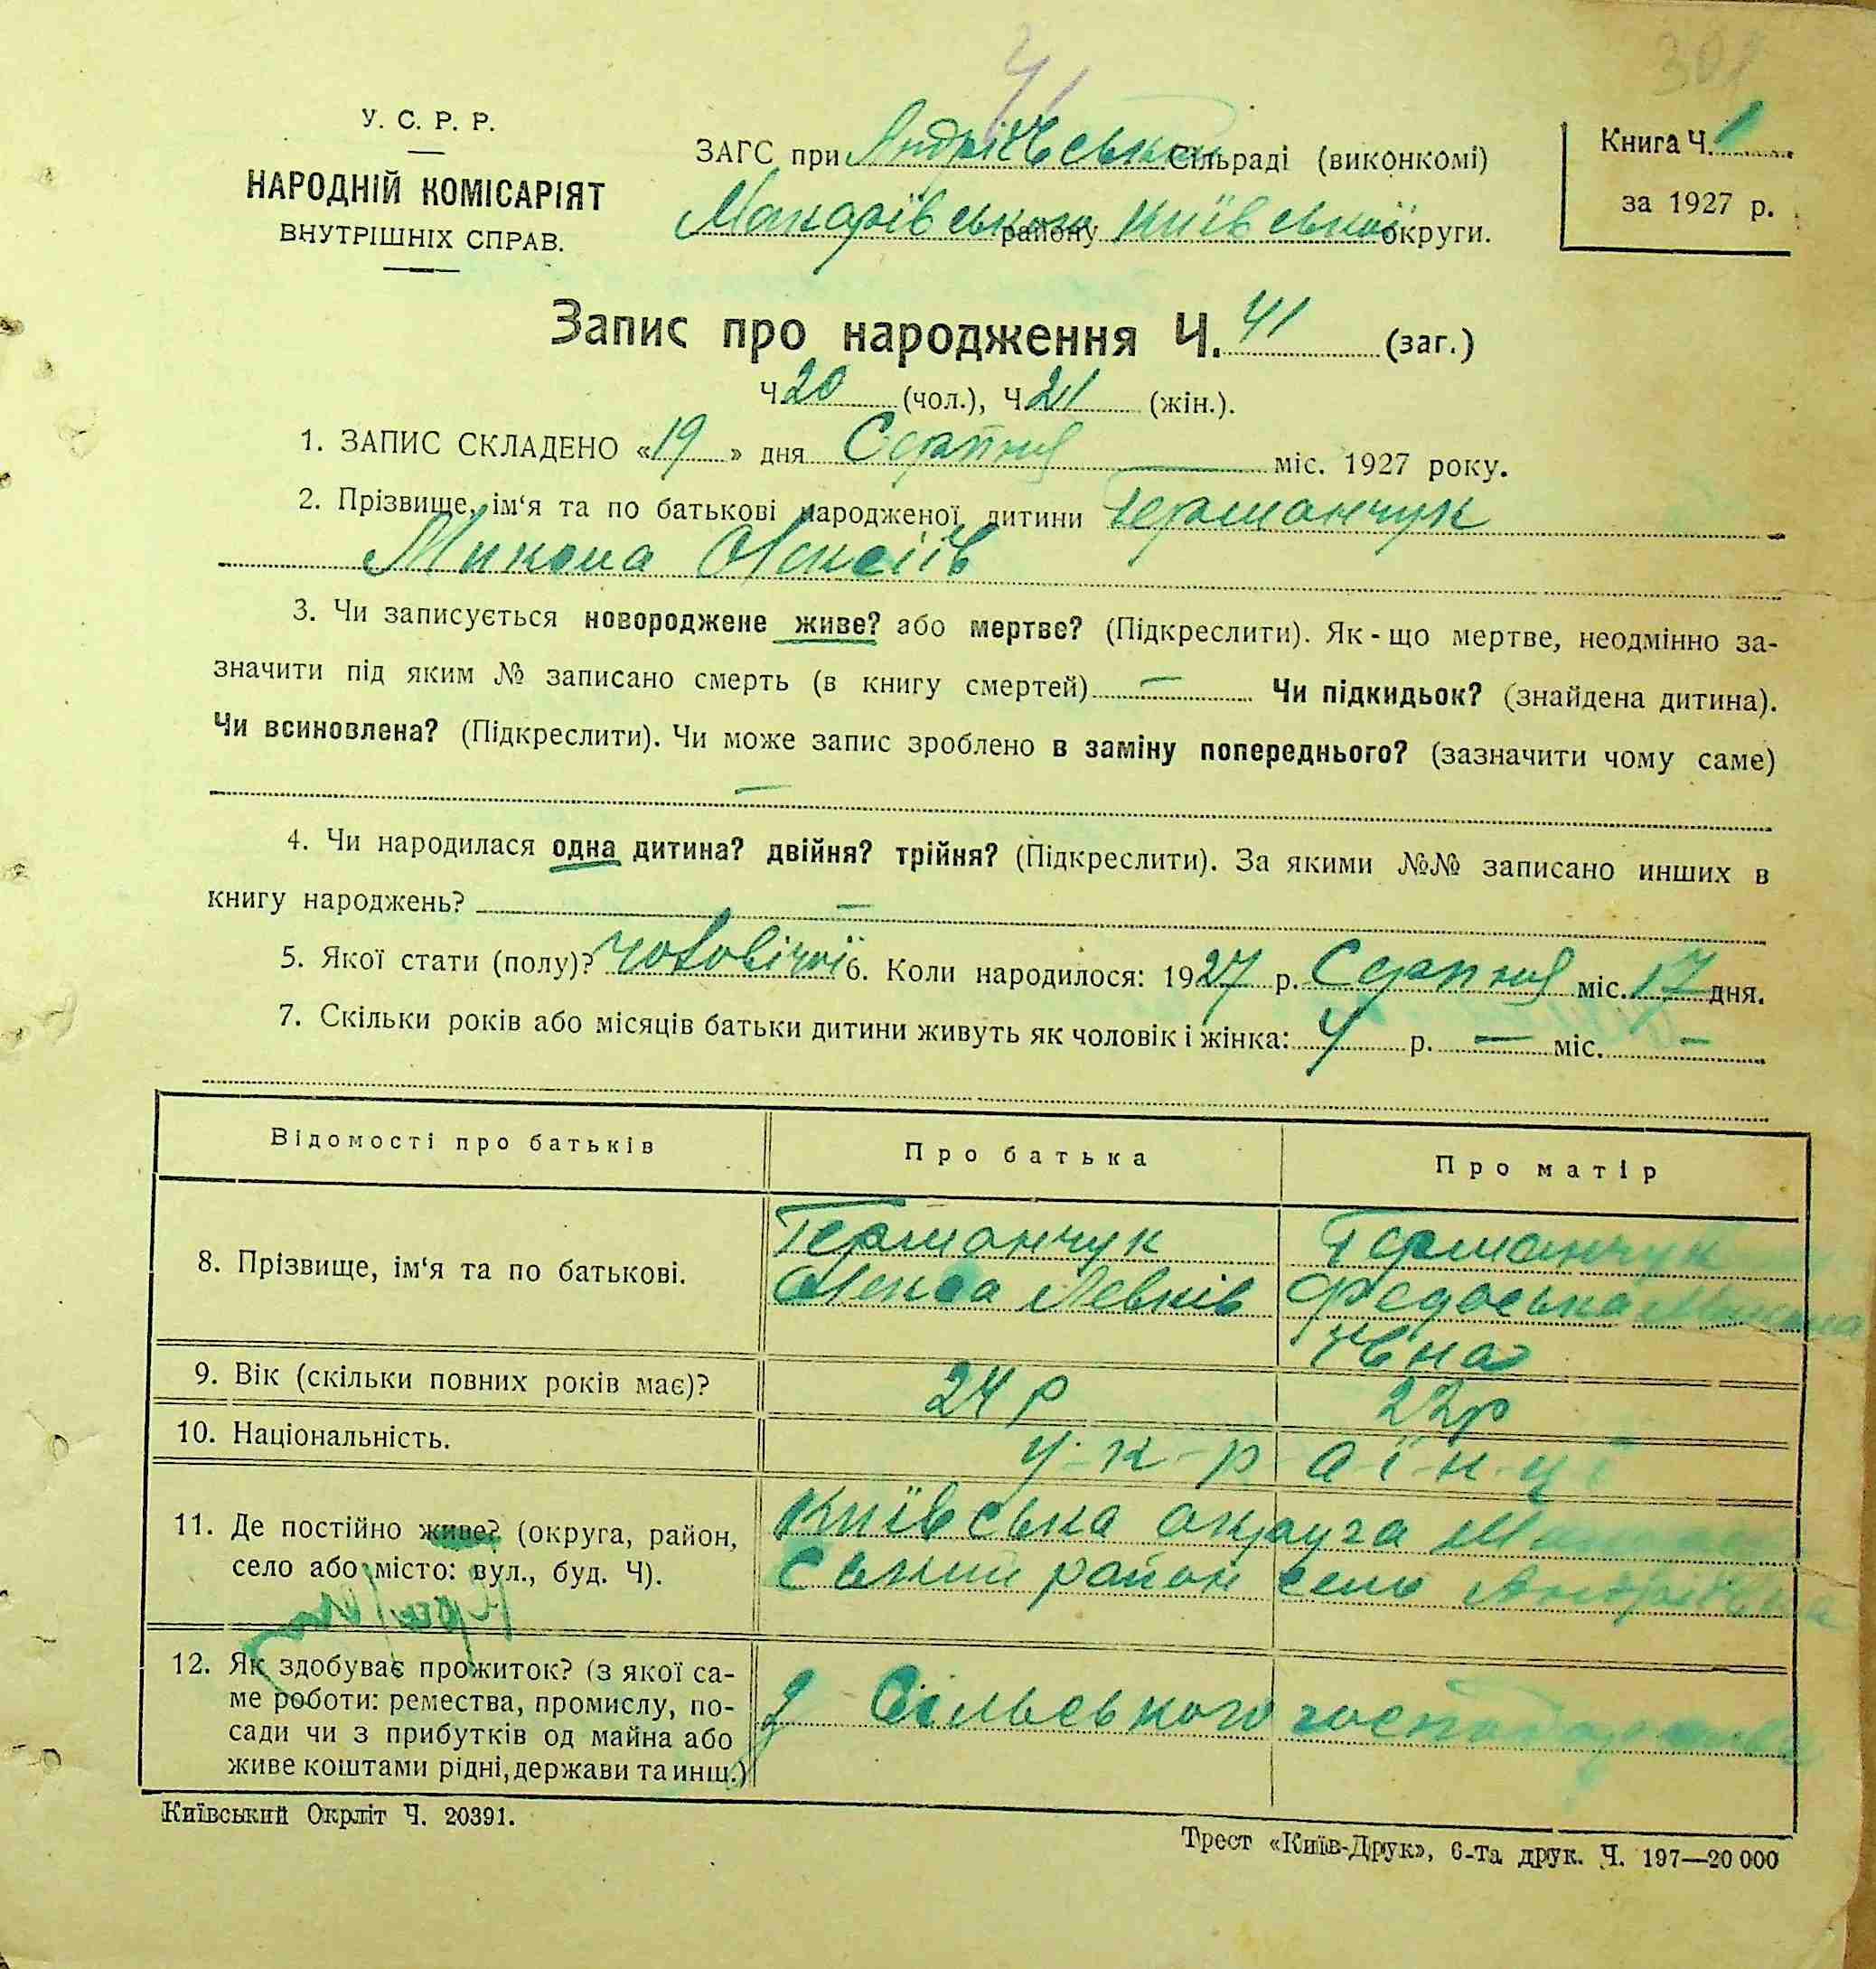 41
301
У. С. Р. Р.
НАРОДНІЙ КОМІСАРІЯТ
ВНУТРІШНІХ СПРАВ.
ЗАГС при Андріївській Сільраді (виконкомі)
Макарівського району Київської округи.
Книга Ч. 1
за 1927 р.
Запис про народження Ч. 41 (заг.)
Ч 20 (чол.), Ч 21 (жін.).
1. ЗАПИС СКЛАДЕНО «19» дня Серпня міс. 1927 року.
2. Прізвище, ім‘я та по батькові народженої дитини Германчук
Микола Олексіїв
3. Чи записується новороджене живе? або мертве? (Підкреслити). Як-що мертве, неодмінно за-
значити під яким № записано смерть (в книгу смертей) — Чи підкидьок? (знайдена дитина).
Чи всиновлена? (Підкреслити). Чи може запис зроблено в заміну попереднього? (зазначити чому саме)
—
4. Чи народилася одна дитина? двійня? трійня? (Підкреслити). За якими №№ записано инших в
книгу народжень? —
5. Якої стати (полу)? чоловічої 6. Коли народилося: 1927 р. Серпня міс. 17 дня.
7. Скільки років або місяців батьки дитини живуть як чоловік і жінка: 4 р. — міс. —
Відомості про батьків Про батька Про матір
8. Прізвище, ім‘я та по батькові.
Германчук
Олекса Левків
Германчук
Федоська Микола
ївна
9. Вік (скільки повних років має)? 24 р 22 р
10. Національність. у-к-р-а-ї-н-ці
11. Де постійно живе? (округа, район,
село або місто: вул., буд. Ч).
Київська округа
ський район село Андріївка
12. Як здобуває прожиток? (з якої са-
ме роботи: ремества, промислу, по-
сади чи з прибутків од майна або
живе коштами рідні, держави та инш.)
з Сільського господарства
Київський Окрліт Ч. 20391.
Трест «Київ-Друк», 6-та друк. Ч. 197—20 000